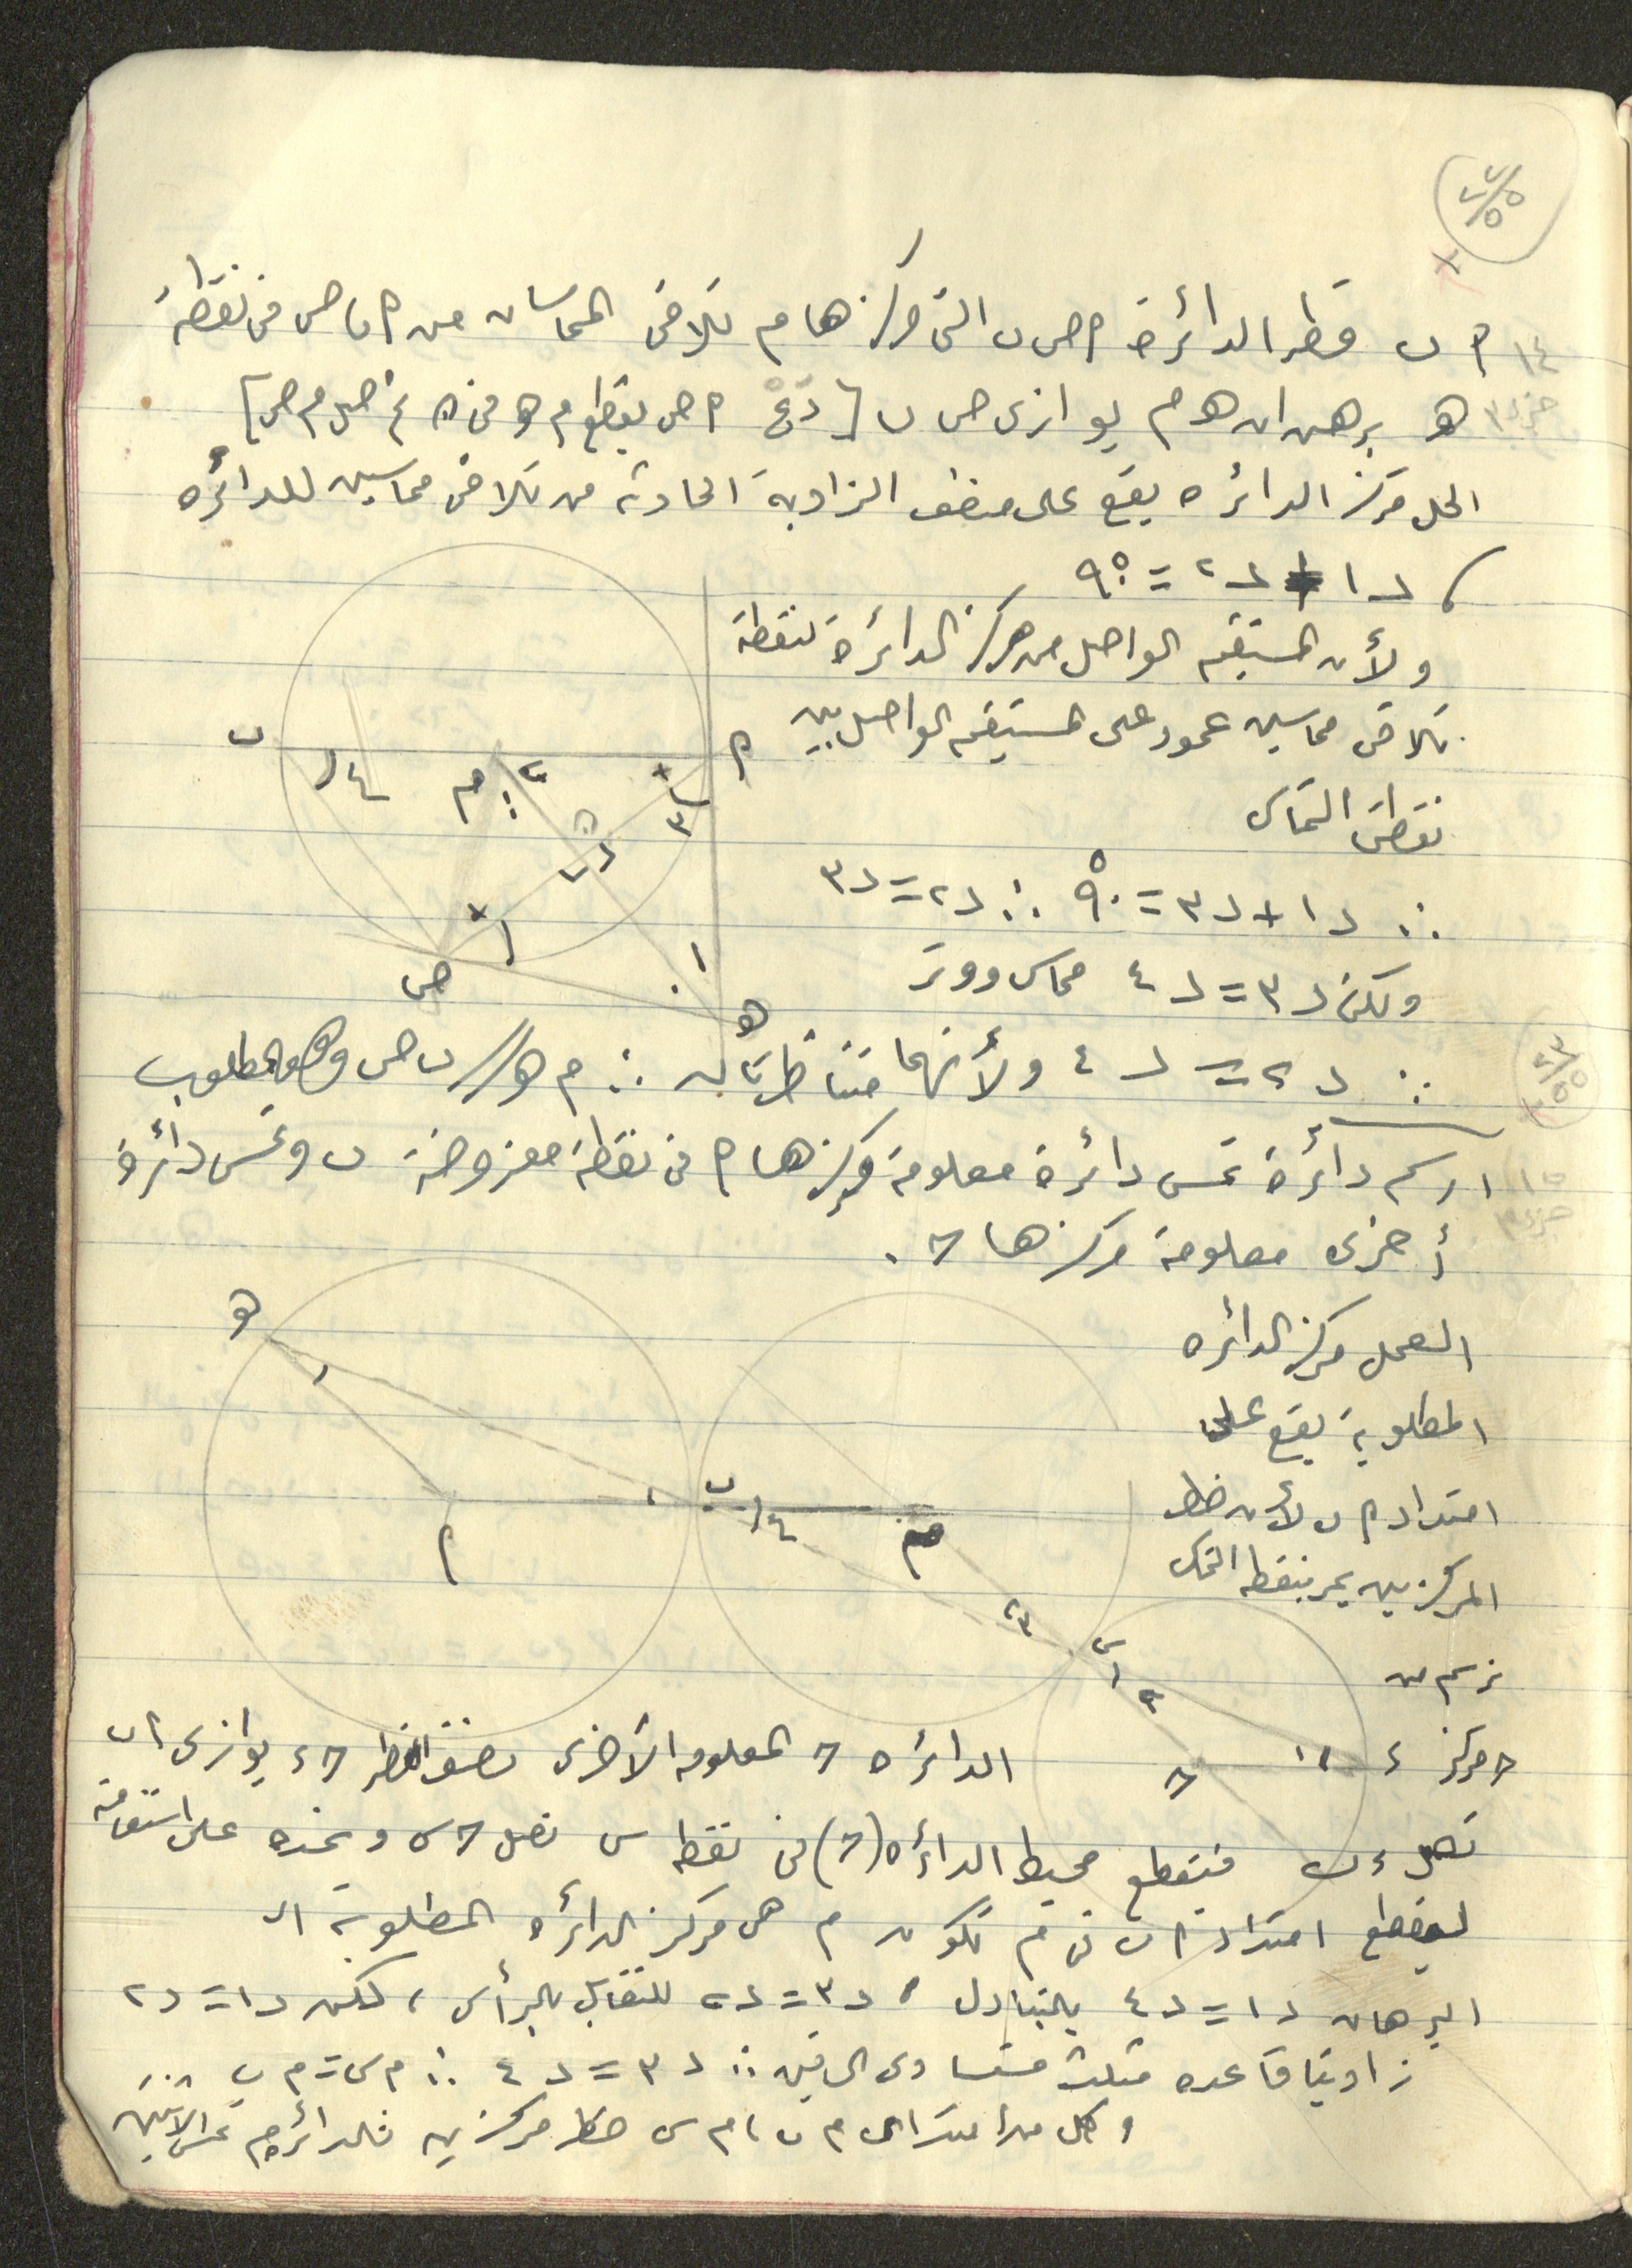 ٢٢/٥٥
١٤ م ب قطر الدائرة م ص ب التى مركزها م تلاقى المماسان من م ، ص فى نقطة
جزء ٣ هـ برهن ان هـ م يوازى ص ب [ دع م ص يقطع م هـ فى ن ثم صل م ص ]
الحل مركز الدائره يقع على منصف الزاوية الحادثة من تلاقى مماسين للدائره
، د ١ + د ٢ = ٩٠°
ولأن المستقيم الواصل من مركز الدائرة لنقطة
تلاقى مماسين عمود على المستقيم الواصل بين
نقطتى التماس
∴ د ١ + د ٣ = ٩٠° ∴ د ٢ = د ٣
ولكن د ٣ = د ٤ مماس ووتر
∴ د ٢ = د ٤ ولأنهما متناظرتان ∴ م هـ // ب ص وهو المطلوب
ب م م ص هـ ن
٢٣/٥٥
١٥ ارسم دائرة تمس دائرة معلومة مركزها م فى نقطة مفروضة ب وتمس دائرة
جزء ٣ أخرى معلومة مركزها ح .
العمل مركز الدائره
المطلوبة يقع على
امتداد م ب لأن خط
المركزين يمر بنقطه التماس
نرسم من
هـ م ب م س ح ء
ح مركز الدائره ح المعلومه الأخرى نصف القطر ح ء يوازى ا ب
نصل ء ب فيقطع محيط الدائره (ح) فى نقطه س نصل ح س ونمده على استقامته
ليقطع امتداد ا ب فى م تكون م هى مركز الدائره المطلوبة
البرهان د ١ = د ٤ بالتبادل ، د ٣ = د ٢ للتقابل بالرأس ، لكن د ١ = د ٢
زاويتا قاعده مثلث متساوى الساقين ∴ د ٣ = د ٤ ∴ م س = م ب
وكل من م ب ، م س خط مركزين فالدائره م تمس الاثنين